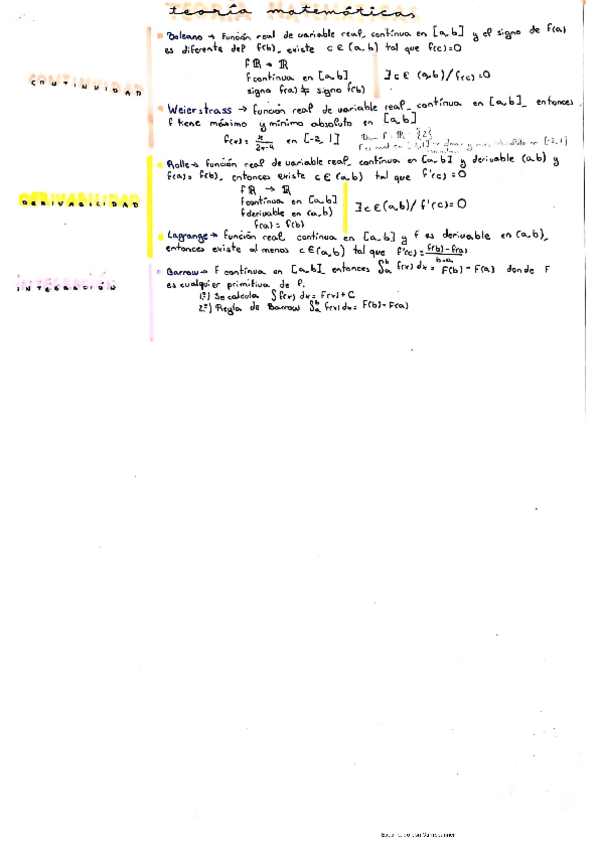 teoría matemáticas
CONTINUIDAD
Bolzano → Función real de variable real, continua en [a,b] y el signo de f(a)
es diferente del f(b), existe c ∈ (a,b) tal que f(c)=0
f ℝ → ℝ
f continua en [a,b]
signo f(a) ≠ signo f(b)
∃ c ∈ (a,b) / f(c)=0
Weierstrass → Función real de variable real, continua en [a,b], entonces
f tiene máximo y mínimo absoluto en [a,b]
f(x) = x/2x-4 en [-2,1]
Dom f: ℝ - {2}
DERIVABILIDAD
Rolle → Función real de variable real, continua en [a,b] y derivable (a,b) y
f(a) = f(b), entonces existe c ∈ (a,b) tal que f'(c)=0
f ℝ → ℝ
f continua en [a,b]
f derivable en (a,b)
f(a) = f(b)
∃ c ∈ (a,b) / f'(c)=0
Lagrange → Función real continua en [a,b] y f es derivable en (a,b),
entonces existe al menos c ∈ (a,b) tal que f'(c) = f(b)-f(a)/b-a
INTEGRACIÓN
Barrow → F continua en [a,b] entonces ∫ₐᵇ f(x) dx = F(b) - F(a) donde F
es cualquier primitiva de f.
1º) Se calcula ∫f(x) dx = F(x)+C
2º) Regla de Barrow ∫ₐᵇ f(x) dx = F(b)-F(a)